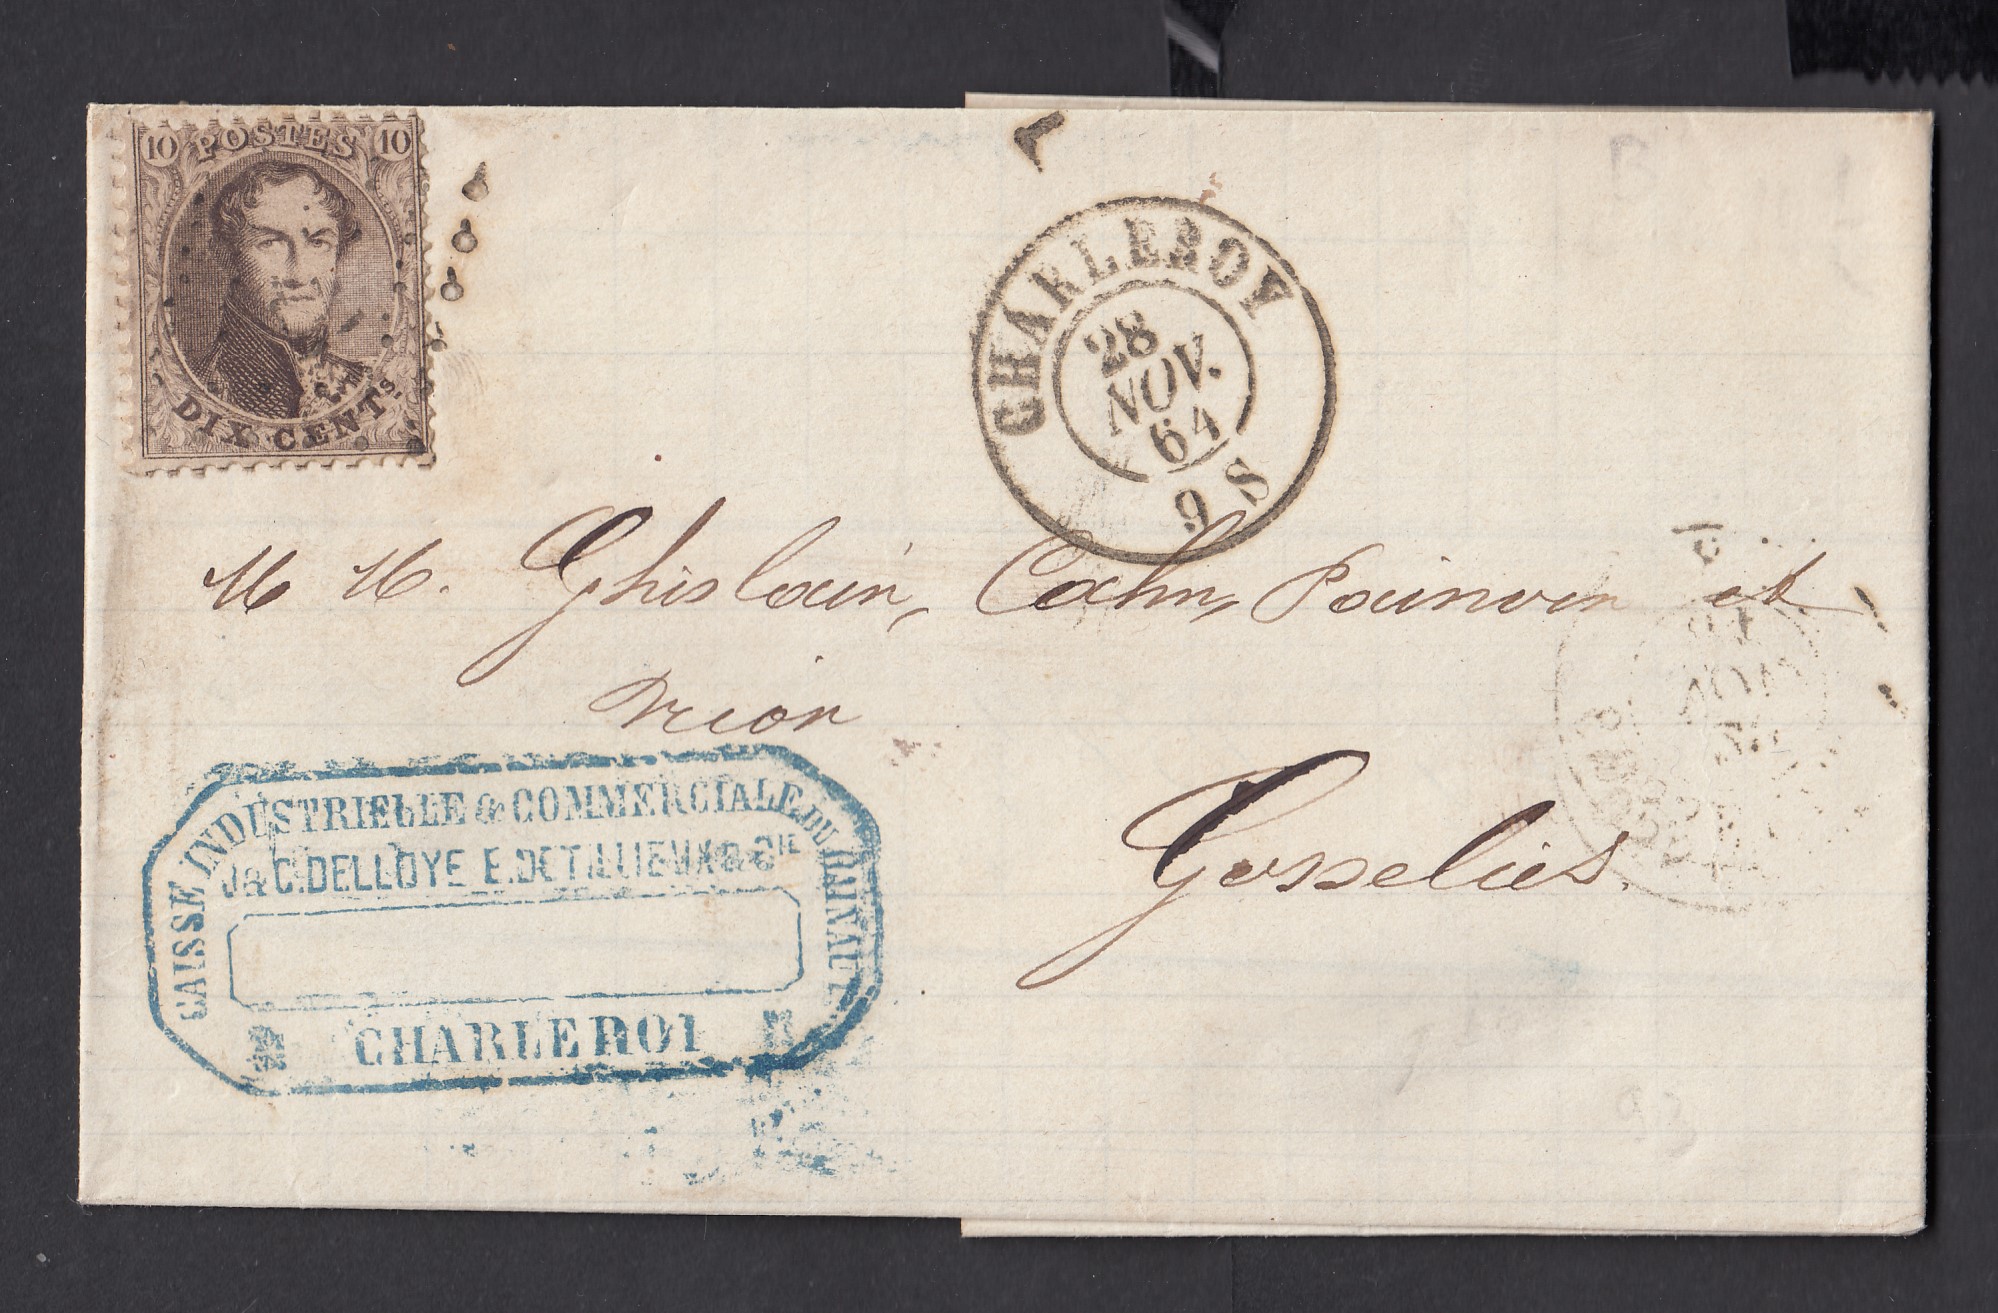 10 POSTES 10
DIX CENTS.
CHARLEROY
28
NOV.
64
9 S
M M. Ghislain, Cahn, Poinven et
Prion
Gosselies.
CAISSE INDUSTRIELLE & COMMERCIALE DU HAINAUT
J & C. DELLOYE E. DETILLIEUX & CIE
CHARLEROI
NOV